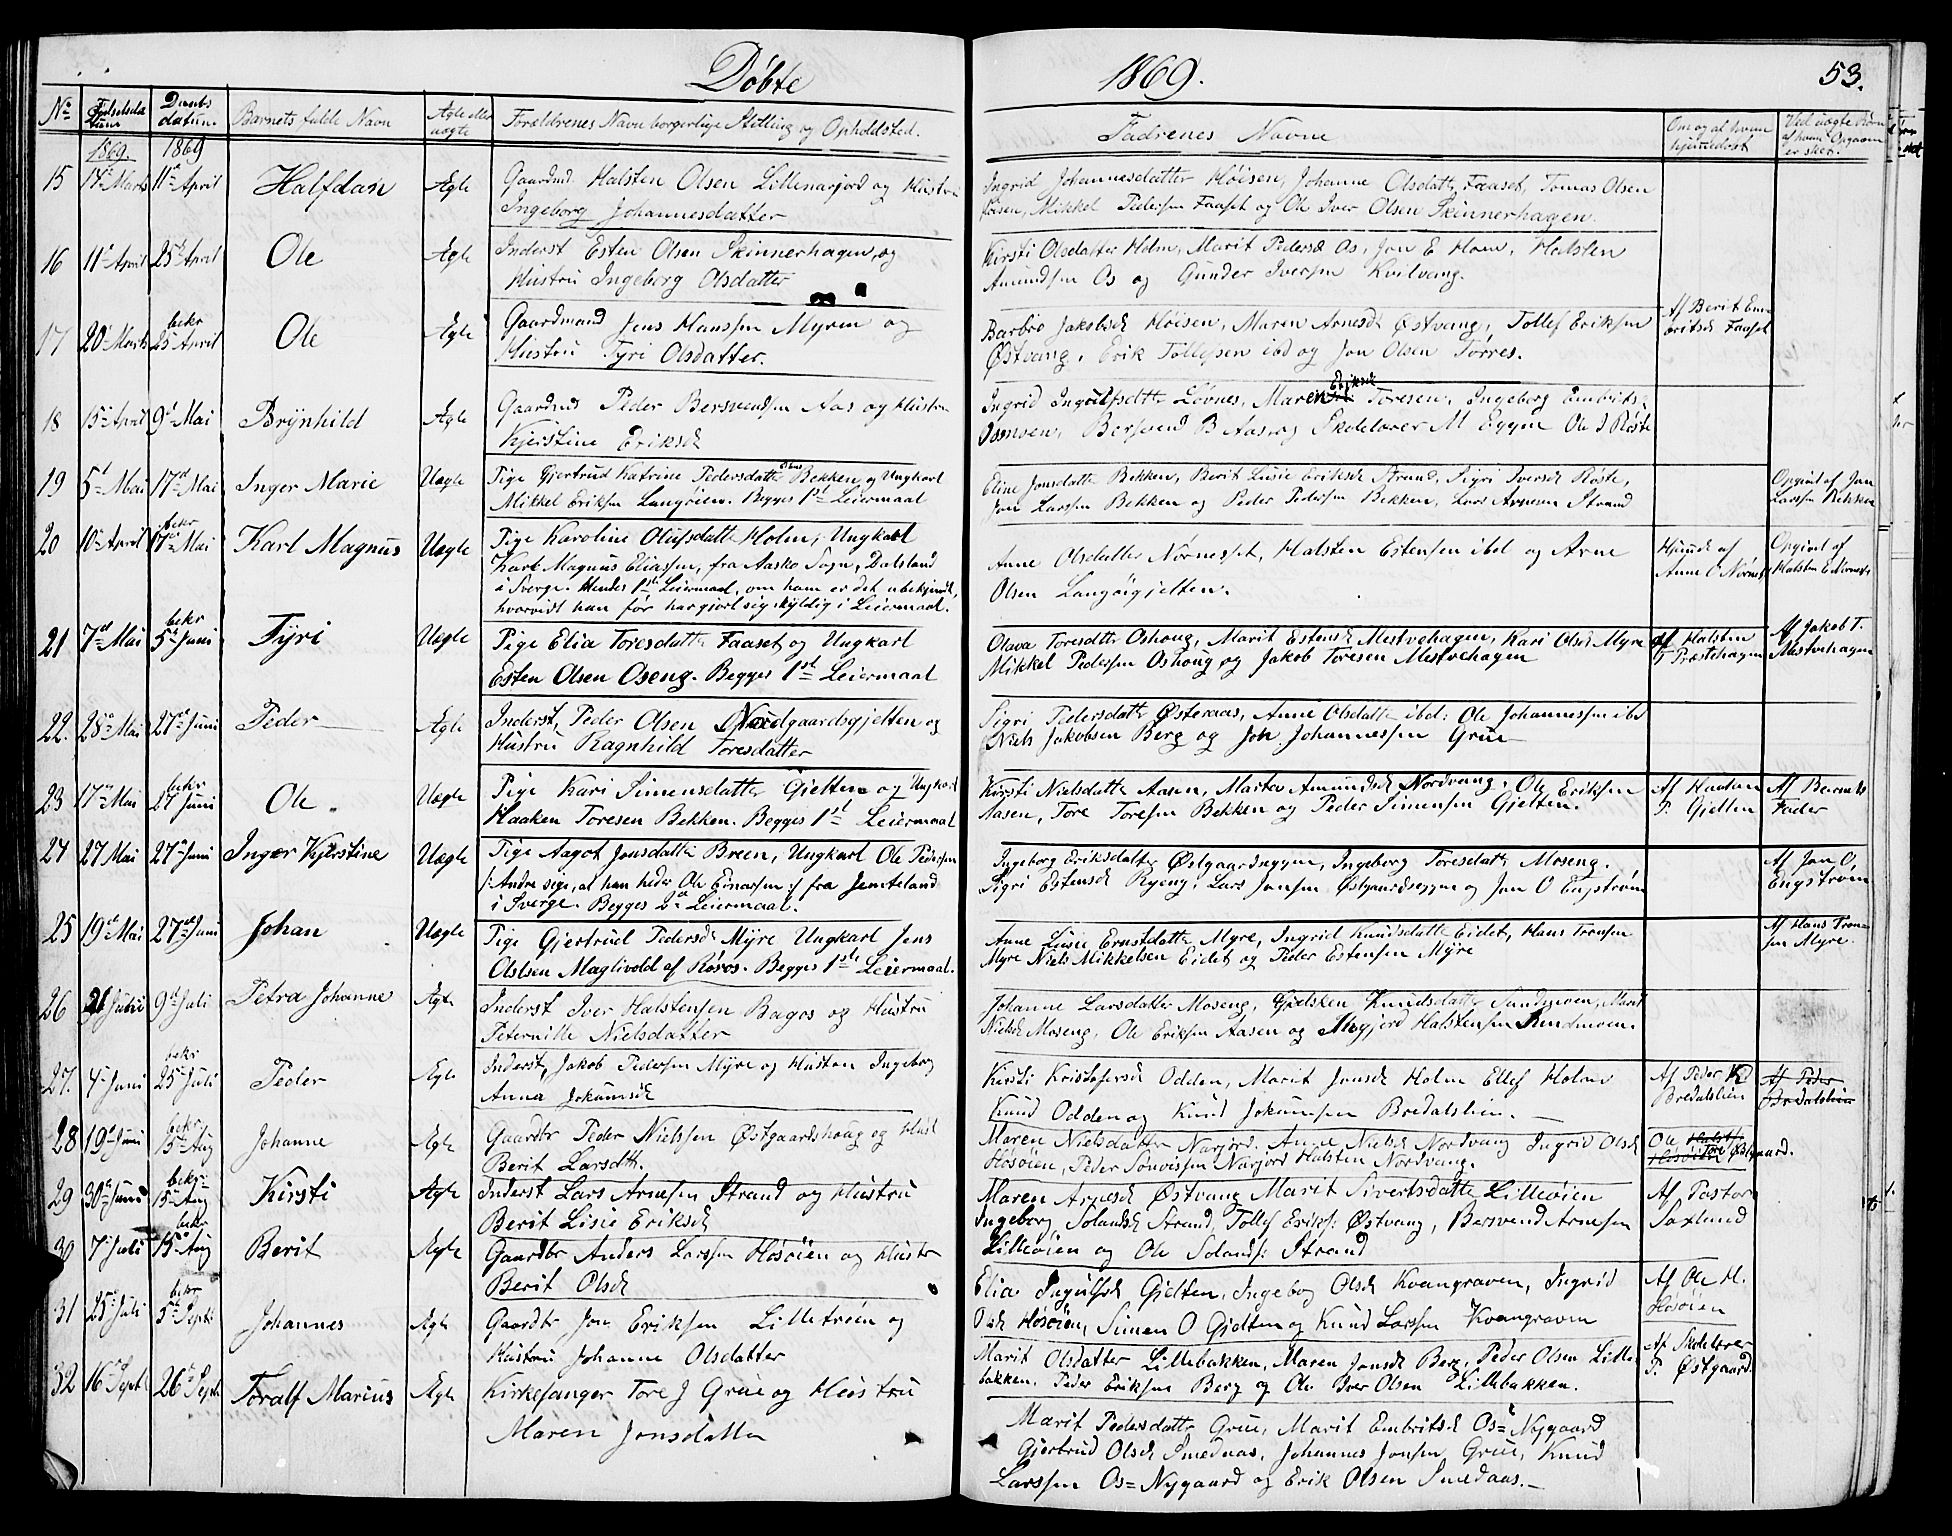 Döbte 1869. 53.
No Fødselsdatum Daabsdatum. Barnets fulde Navn Ægte eller uægte Forældrenes Navn borgerlige Stilling og Opholdsted. Fadrenes Navne Om og af hvem hjemmedøbt Ved uægte Børn af hvem Opgaven er sket.
1869. 1869
15 14de Marts 11te April Halfdan Ægte Gaardmd Halsten Olsen Lillenarjord og Hustru
Ingeborg Johannesdatter
Ingrid Johannesdatter Höisen, Johanne Olsdatt. Faaset, Tomas Olsen
Höisen, Mikkel Pedersen Faaset og Ole Iver Olsen Skinnerhagen.
16 11te April 25de April Ole Ægte Inderst Esten Olsen Skinnerhagen og
Hustru Ingeborg Olsdatter
Kirsti Olsdatter Holm, Marit Pedersd Os, Jon E Moen, Halsten
Amundsen Os og Gunder Iversen Kvilvang.
17 20de Marts bekr 25 April Ole Ægte Gaardmand Jens Hanssen Myren og
Hustru Tyri Olsdatter.
Barbro Jakobsd Höisen, Maren Arnesd Østvang, Tollef Eriksen
Østvang, Erik Tollefsen ibd og Jon Olsen Törres.
Af Berit Em
britsd Faaset
18 15de April 9de Mai Brynhild Ægte Gaardmd Peder Bersvendsen Aas og Hustru
Kjerstine Eriksd
Ingrid Ingulfsdatte Lövnes, Maren Eriksd Toresen, Ingeborg Embrits-
Bersvend B Aas og Skolelærer M Eggen Ole I Röste
19 5te Mai 17de Mai Inger Marie Uægte Pige Gjertrud Katrine Pedersdatte Bekken og Ungkarl
Mikkel Eriksen Langöien. Begges 1st Leiermaal
Eline Jonsdatte Bekken, Berit Lusie Eriksd Strand, Sigri Iversd Röste,
Jon Larssen Bekken og Peder Pedersen Bekken, Lars Arnesen Strand
Opgivet af Jon
Larssen Bekken
20 10de April bekr 17de Mai Karl Magnus Uægte Pige Karoline Olufsdatte Holm, Ungkarl
Karl Magnus Eliassen, fra Aasko Sogn, Dalsland
i Sverge. Hendes 1st Leiermaal, om ham er det ubekjendt,
hvorvidt han för har gjort sig skyldig i Leiermaal.
Anne Olsdatter Nörnesset, Halsten Estensen ibd og Arne
Olsen Langöigjelten.
Hjemd af
Anne O Nörnes
Opgivet af
Halsten E Nörnests
21 7de Mai bekr 5te Juni Tyri Uægte Pige Elia Toresdatte Faaset og Ungkarl
Esten Olsen Oseng. Begges 1st Leiermaal
Olava Toresdtte Oshoug, Marit Estensd Mestvehagen, Kari Olsd Myre
Mikkel Pedersen Oshoug og Jakob Toresen Mestvehagen
Af Halsten
T Præstehagen
Af Jakob T.
Mestvehagen
22. 28de Mai 27de Juni Peder Ægte Inderst, Peder Olsen Nordgaardsgjelten og
Hustru Ragnhild Toresdatter
Sigri Pedersdatte Østeraas, Anne Olsdatte ibd: Ole Johannessen ibd
Niels Jakobsen Berg og Jon Johannessen Grue
23 17de Mai bekr 27 Juni Ole. Uægte Pige Kari Simensdatter Gjelten og Ungkarl
Haaken Toresen Bekken. Begges 1st Leiermaal
Kirsti Nielsdatte Aasen, Marten Amundsd Nordvang. Ole Eriksen
Aasen, Tore Toresen Bekken og Peder Simensen Gjelten.
Af Haaken
T. Gjelten
Af Barnets
Fader
24 27 Mai 27de Juni Inger Kjerstine Uægte Pige Aagot Jonsdatte Breen, Ungkarl Ole Pedersen
/: Andre sige, at han heder Ole Einarssen :/ fra Jemteland
i Sverge. Begges 2de Leiermaal.
Ingeborg Eriksdatter Østgaardseggen, Ingeborg Toresdatt Moseng.
Sigri Estensd Ryeng, Lars Jonsen Østgaardseggen og Jon O Engström
Af Jon O,
Engström
25 19de Mai 27de Juni Johan Uægte Pige Gjertrud Pedersd Myre Ungkarl Jens
Olssen Maglivold af Röros. Begges 1ste Leiermaal.
Anne Lusie Ernstdatte Myre, Ingrid Knudsdatte Eidet, Hans Tronsen
Myre Niels Mikkelsen Eidet og Peder Estensen Myre
Af Hans Tron
sen Myre.
26 21 Juni 9de Juli Petra Johanne Ægte Inderst Iver Halstensen Bagos og Hustru
Peternille Nielsdatter
Johanne Larsdatter Moseng, Gjelsken Knudsdatte Sundmoen, Marit
Nielsd Moseng, Ole Eriksen Aasen og Megjerd Halstensen Sundmoen.
27. 4de Juni bekr 25de Juli Peder Ægte Inderst, Jakob Pedersen Myre og Hustru Ingeborg
Anna Jokumsd
Kirsti Kristofersd Odden, Marit Jonsd Holm Ellef Holm
Knud Odden og Knud Jokumsen Bredalslien.
Af Peder Kd
Bredalslien
Af Peder
Bredalslien
28 19de Juni bekr 15de Aug Johanne Ægte Gaardbr Peder Nielssen Østgaardshoug og Hust
Berit Larsdtt.
Maren Nielsdatter Narjord. Anne Nielsd Nordvang Ingrid Olsd
Hösöien, Peder Narjord Halsten Nordvang.
Ole Halst
Hösöien Tore Østgaard.
29 30te Juni bekr. 15de Aug Kirsti Ægte Inderst Lars Arnesen Strand og Hustru
Berit Lisie Eriksd
Maren Arnesd Østvang Marit Sivertsdatte Lilleöien
Ingeborg Solandsd Strand, Tollef Eriks: Østvang, Bersvend Arnesen
Lilleöien og Ole Solands: Strand
Af Pastor
Saxlund
30 7de Juli bekr 15de Aug Berit Ægte Gaardbr Anders Larssen Hösöien og Hustr
Berit Olsd
Elia Ingulfsd Gjelten, Ingebog Olsd Kvangraven, Ingrid
Olsd Hösöien, Simen O Gjelten og Knud Larssen Kvangraven
Af Ole H.
Hösöien
31 25de Juli bekr 5te Septr Johannes Ægte Gaardbr Jon Eriksen Lilletröen og
Hustru Johanne Olsdatter
Marit Olsdatter Lillebakken, Maren Jonsd Berg, Peder Olsen Lille-
bakken. Peder Eriksen Berg og Ole Iver Olsen Lillebakken.
Af Skolelærer
P. Østgaard
32 16de Sept 26de Sept. Toralf Marius Ægte Kirkesanger Tore J Grue og Hustru
Maren Jonsdatte
Marit Pedersdatte Grue, Marit Embritsd Os=Nygaard
Gjertrud Olsd Smedaas, Johannes Jonsen Grue, Knud
Larssen Os=Nygaard og Erik Olsen Smedaas.